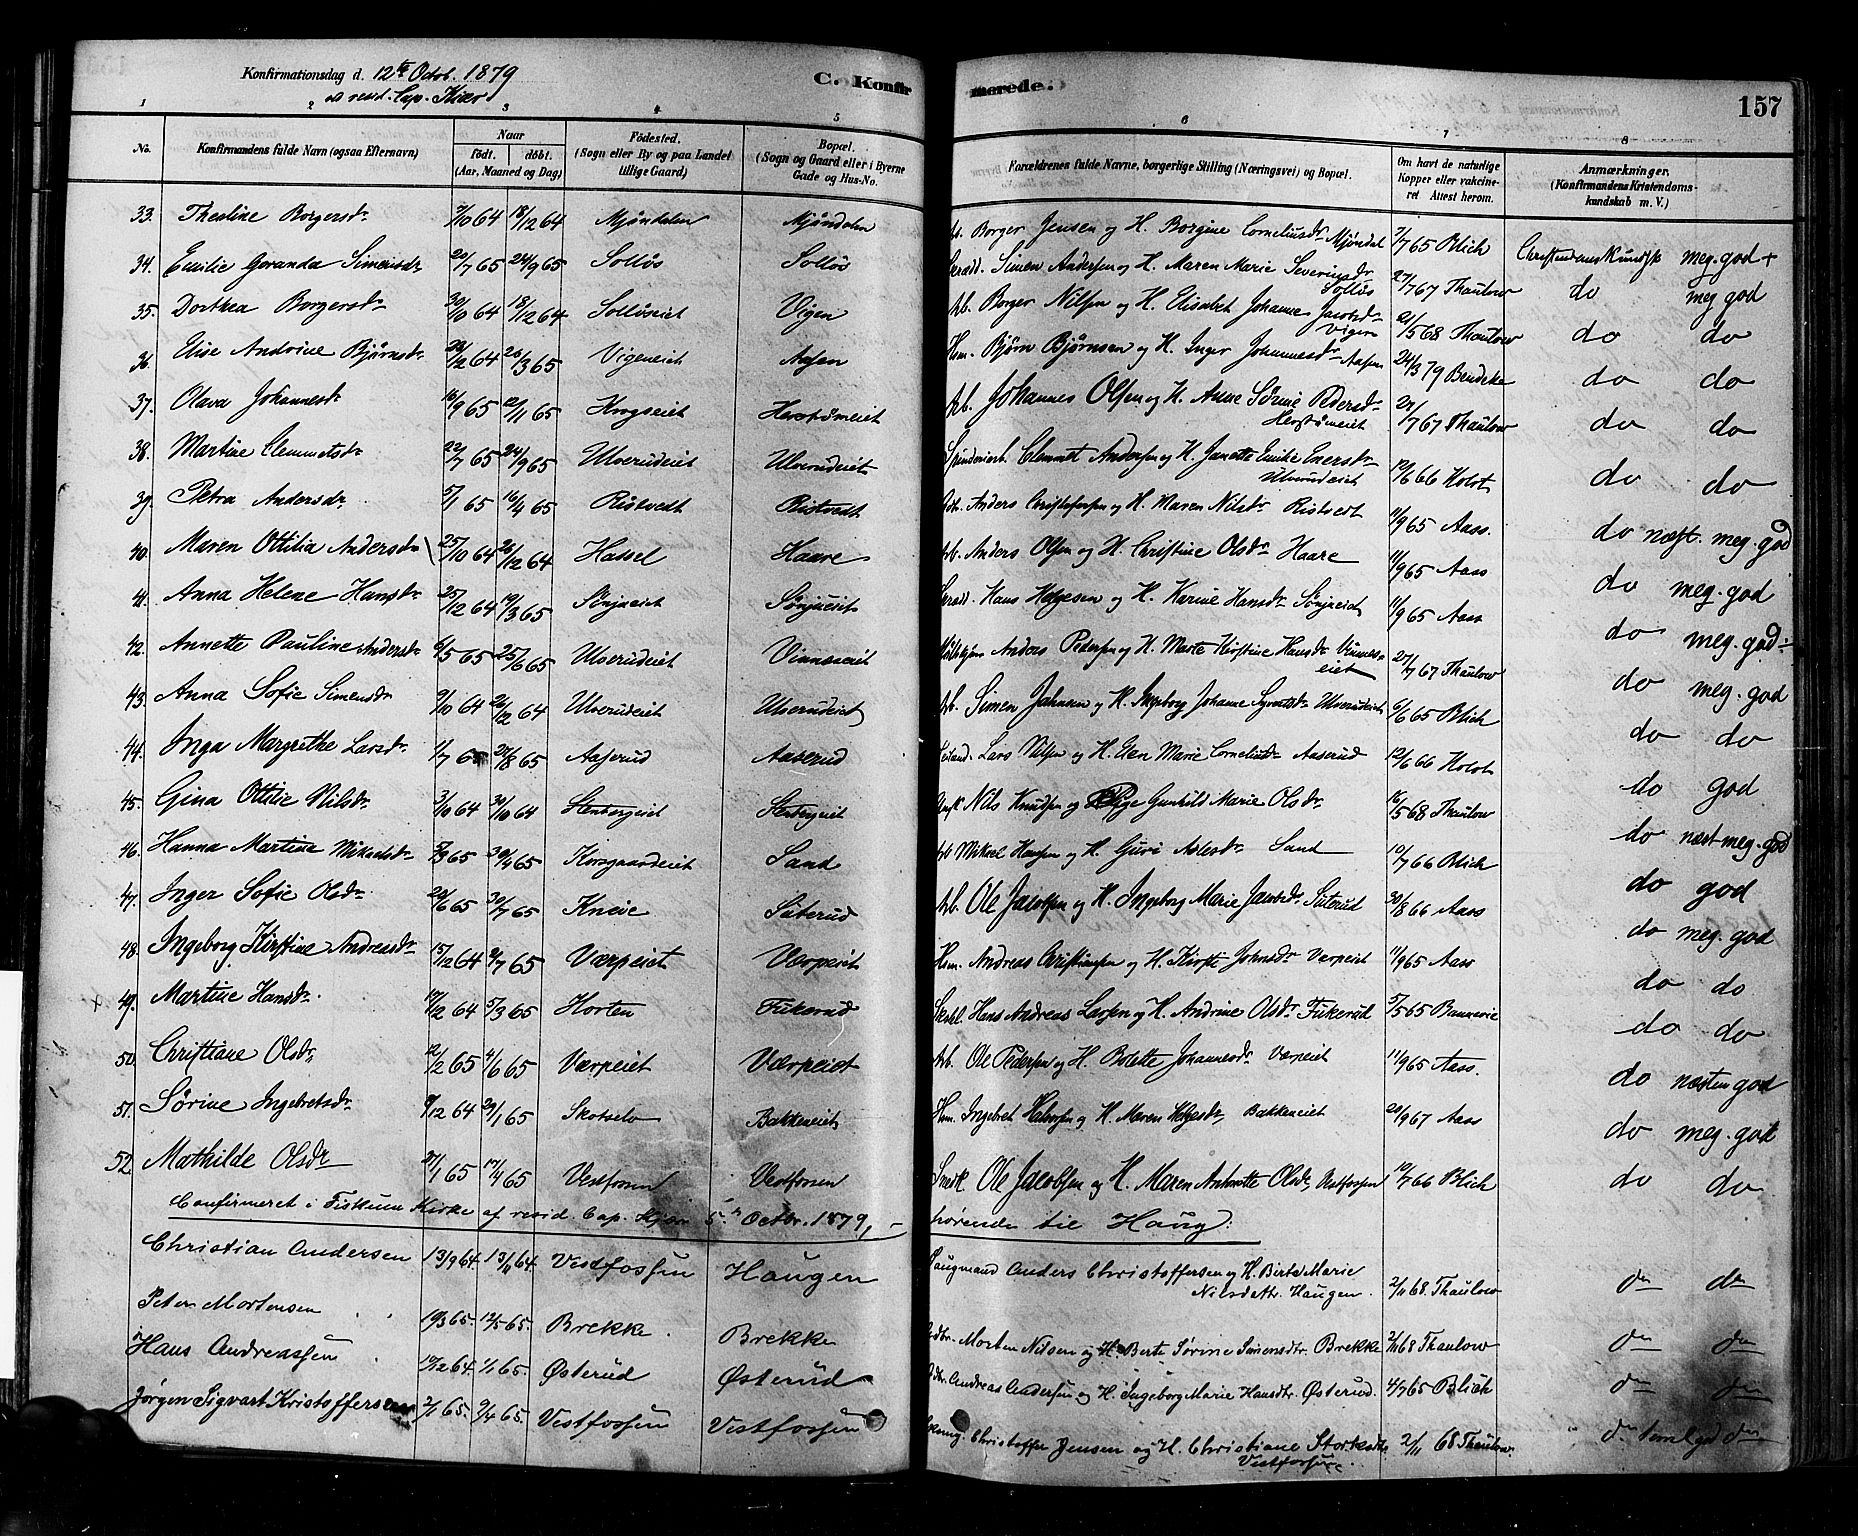 Konfirmationsdag d. 12te Octob. 1879
C. Konfirmerede.
157
1 2 3 4 5 6 7 8
No. Konfirmandens fulde Navn (ogsaa Efternavn) Naar født. døbt. (Aar, Maaned og Dag) Fødested. (Sogn eller By og paa Landet tillige Gaard) Bopæl. (Sogn og Gaard eller i Byerne Gade og Hus-No. Forældrenes fulde Navne, borgerlige Stilling (Næringsvei) og Bopæl. Om havt de naturlige Kopper eller vakcineret Attest herom. Anmærkninger. (Konfirmandens Kristendomskundskab m. V.)
33. Thealine Borgersdr 7/10 64 18/12 64 Mjøndalen Mjøndalen Arb. Borger Jensen og H. Borgine Corneliusdr Mjøndal 7/7 65 Blich Christendomskundsk meg. god +
34. Emilie Goranda Simensdr 22/7 65 24/9 65 Solløs Solløs Skrædd. Simen Andersen og H. Maren Marie Severinsdr Solløs 27/7 67 Thaulow do meg god
35. Dorthea Borgersdr 30/10 64 18/12 64 Solløseiet Vigen Arb. Borger Nilsen og H. Elisabet Johanne Jacobsdr Vigen 21/5 68 Thaulow do do
36. Elise Andrine Bjørnsdr 28/12 64 26/3 65 Vigeneiet Aasen Hsm. Bjørn Bjørnsen og H. Inger Johannesdr Aasen 24/3 79 Bendeke do do
37. Olava Johannesdr 16/9 65 12/11 65 Krogseiet Herstrømeiet Arb. Johannes Olsen og H. Anne Sørine Pedersdr Herstrømeiet 27/7 67 Thaulow do do
38. Martine Clemmetsdr 22/7 65 24/9 65 Ulverudeiet Ulverudeiet Spinderiarb. Clemmet Andersen og H. Janette Emilie Enersdr Ulverudeiet 12/6 66 Holst do do
39. Petra Andersdr 5/1 65 16/4 65 Ristvedt Ristvedt Anders Christofersen og H. Maren Nilsdr Ristvedt 11/9 65 Aass. do næst. meg. god
40. Maren Ottilia Andersdr 25/10 64 26/12 64 Hassel Haare Arb. Anders Olsen og H. Christine Olsdr Haare 11/9 65 Aass do meg. god
41. Anna Helene Hansdr 25/12 64 19/3 65 Sønjueiet Sønjueiet Skrædd. Hans Helgesen og H. Karine Hansdr Sønjueiet 11/9 65 Aass do meg. god
42. Annette Pauline Andersdr 6/5 65 25/6 65 Ulverudeiet Vinneseiet Anders Pedersen og H. Marte Kirstine Hansdr Vinneseiet 27/7 67 Thaulow do meg. god
43. Anna Sofie Simensdr 9/10 64 26/12 64 Ulverudeiet Ulverudeiet Arb. Simen Johnsen og H. Ingeborg Johanne Syvertsdr Ulverudeiet 6/6 65 Blich do do
44. Inga Margrethe Larsdr 1/7 65 27/8 65 Aaserud Aaserud Lars Nilsen og H. Elen Marie Corneliusdr Aaserud 12/6 66 Holst do god
45. Gina Ottilie Nilsdr 3/10 64 30/10 64 Stenbergeiet Stenbergeiet Ungk. Nils Knudsen og Pige Gunhild Marie Olsdr 16/5 68 Thaulow do næst meg. god
46. Hanna Martina Mikaelsdr 65 30/4 65 Korsgaardeiet Sand Arb Mikael Hansen og H. Guri Aslesdr Sand 10/7 66 Blich do god
47. Inger Sofie Olsdr 20/6 65 30/7 65 Kneie Siterud Arb. Ole Jacobsen og H. Ingeborg Marie Jacobsdr Siterud 30/8 66 Aass do meg. god
48. Ingeborg Kirstine Andreasdr 15/12 64 9/7 65 Værpeiet Værpeiet Hsm. Andreas Christiansen og H. Kirsti Johnsdr Værpeiet 11/9 65 Aass do do
+ 49. Martine Hansdr. 17/12 64 5/3 65 Horten Fukerud Hans Andreas Larsen og H. Andrine Olsdr Fukerud 5/5 65 do do
50. Christiane Olsdr 12/2 65 4/6 65 Værpeiet Værpeiet Arb. Ole Pedersen og H. Bolette Johannesdr Værpeiet 11/9 65 Aass. do næsten god
51. Sørine Ingebretsdr 9/12 64 29/1 65 Skotselv Bakkeneiet Hsm. Ingebret Halvorsen og H. Maren Helgesdr, Bakkeneiet 20/9 67 Aass do meg. god
52. Mathilde Olsdr 27/1 65 17/4 65 Vestfossen Vestfossen Snedk Ole Jacobsen og H. Maren Antonette Olsdr, Vestfossen 10/7 66 Blich do do
Confirmeret i Fiskum Kirke af resid. Cap. Kjær 5. Octbr. 1879, – hørende til Haug:
Christian Andersen 13/9 64 13/11 64 Vestfossen Haugen Laugmand Anders Christoffersen og H. Birte Marie Nilsdattr. Haugen. 2/11 68 Thaulow do do
Peter Mortensen 19/3 65. 12/5 65. Brekke. Brekke Gdbr. Morten Nilsen og H. Berte Sørine Simensdtr. Brekke 2/11 68 Thaulow do do
Hans Andreassen 19/12 64. 1/1 65. Østerud Østerud Andreas Andersen og H. Ingeborg Marie Hansdtr. Østerud. 4/7 65 Blich do do
Jørgen Sigvart Kristoffersen 2/1 65. 9/4 65. Vestfossen Vestfossen Christoffer Jensen og H. Christiane Vestfossen 2/11 68 Thaulow. do